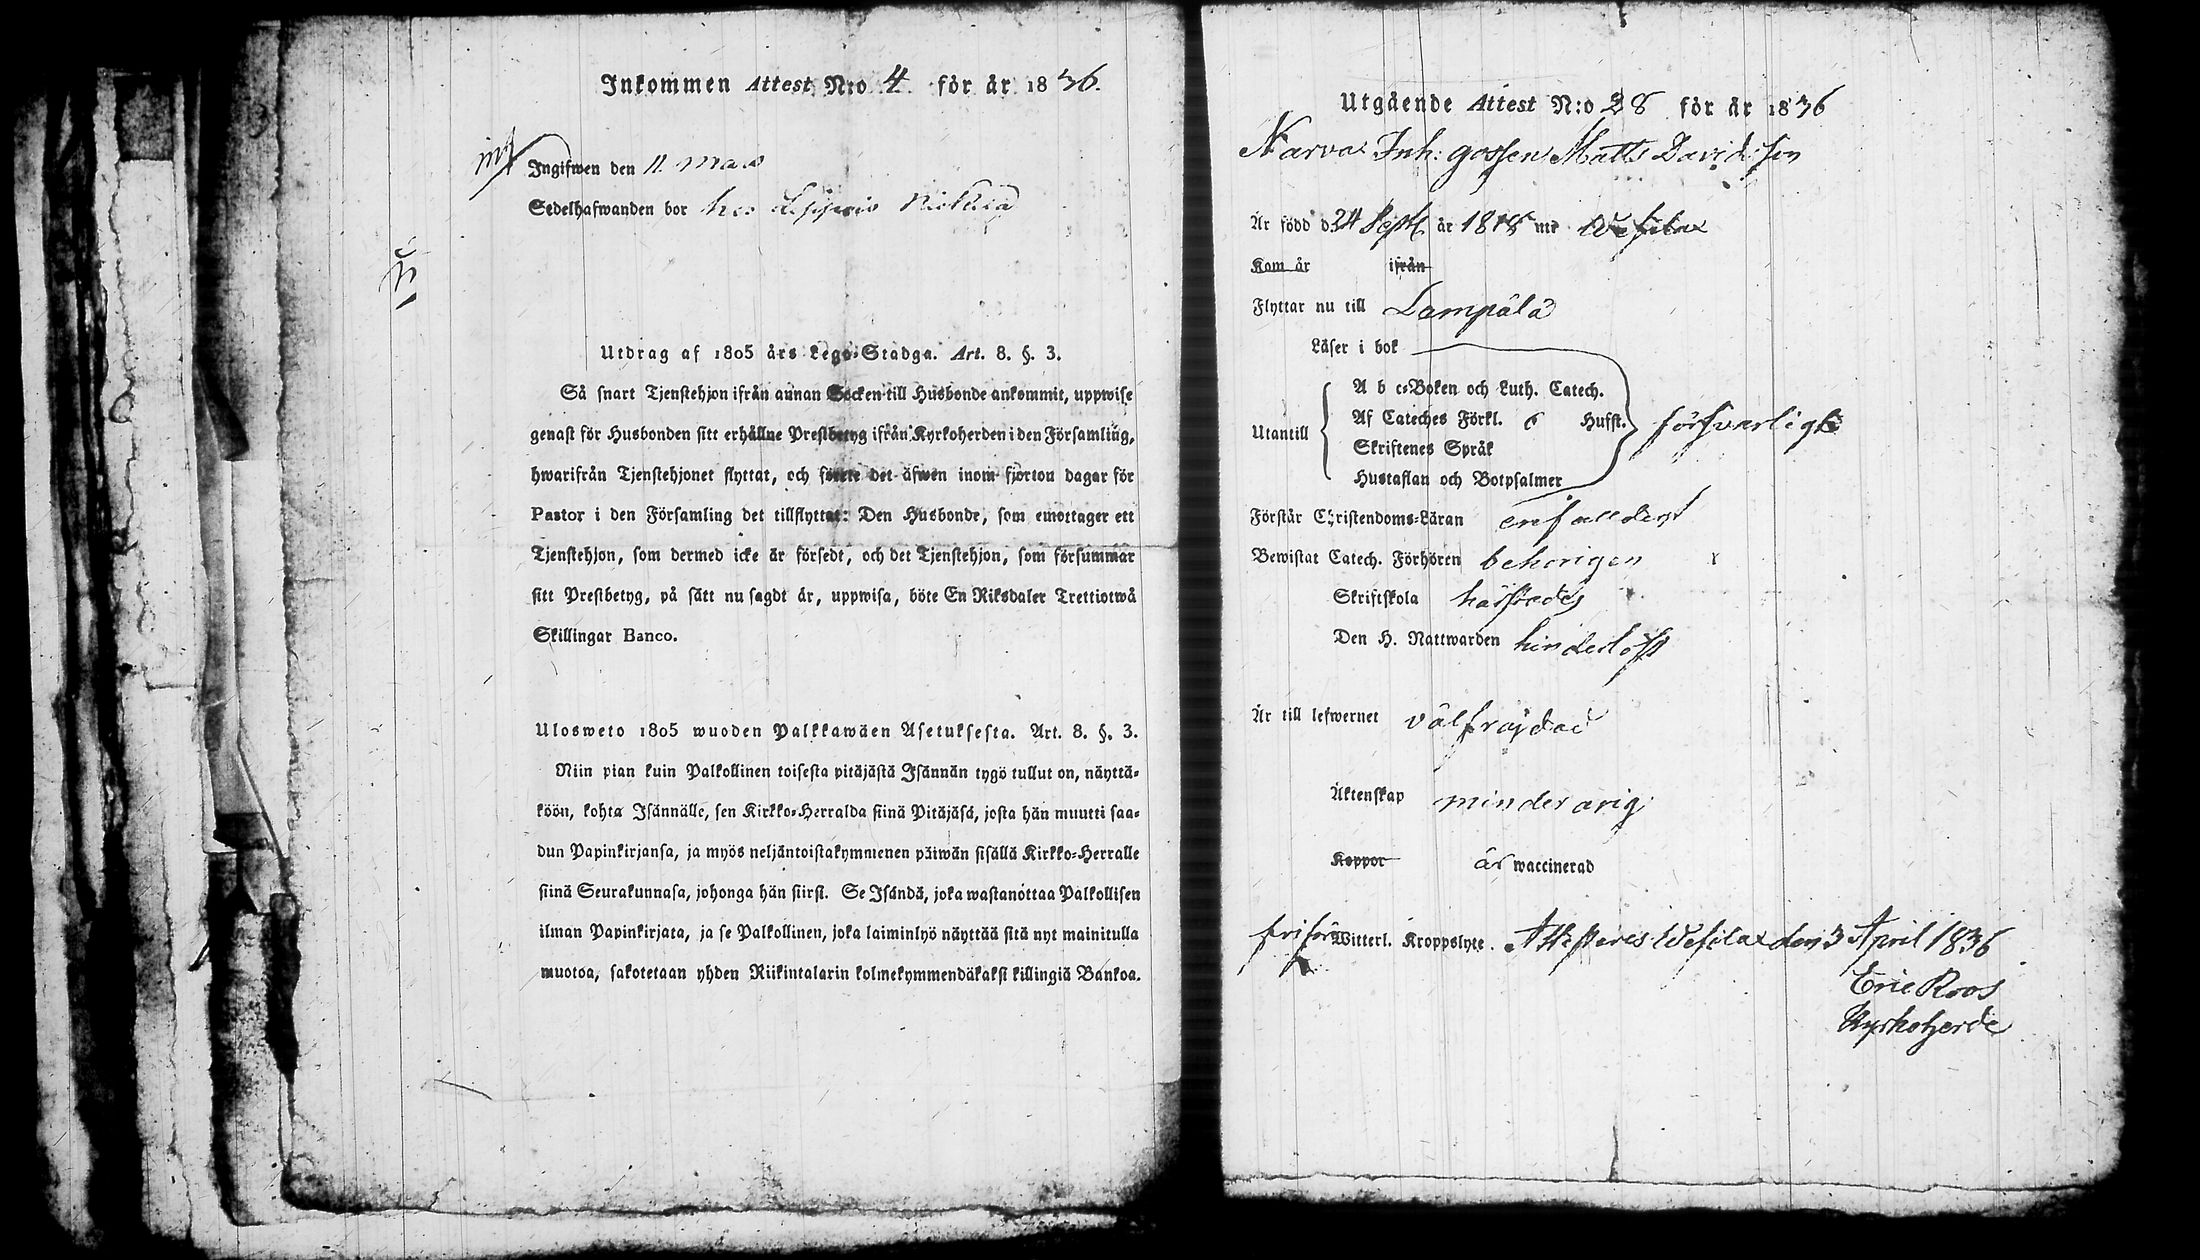 Inkommen Attest N:o 4 för år 1836.
Ingifwen den 11 Mars
Sedelhafwanden bor hos
Utdrag af 1805 års Lego-Stadga. Art. 8. §. 3.
Så snart Tjenstehjon ifrån annan Socken till Husbonde ankommit, uppwise
genast för Husbonden sitt erhållne Prestbetyg ifrån Kyrkoherden i den Församling,
hwarifrån Tjenstehjonet flyttat, och förete det äfwen inom fjorton dagar för
Pastor i den Församling det tillflyttat: Den Husbonde, som emottager ett
Tjenstehjon, som dermed icke är försedt, och det Tjenstehjon, som försummar
sitt Prestbetyg, på sätt nu sagdt är, uppwisa, böte En Riksdaler Trettiotwå
Skillingar Banco.
Ulosweto 1805 wuoden Palkkawäen Asetuksesta. Art. 8. §. 3.
Niin pian kuin Palkollinen toisesta pitäjästä Isännän tygö tullut on, näyttä-
köön, kohta Isännälle, sen Kirkko-Herralda siinä Pitäjäsä, josta hän muutti saa-
dun Papinkirjansa, ja myös neljäntoistakymmenen päiwän sisällä Kirkko-Herralle
siinä Seurakunnasa, johonga hän siirsi. Se Isändä, joka wastanottaa Palkollisen
ilman Papinkirjata, ja se Palkollinen, joka laiminlyö näyttää sitä nyt mainitulla
muotoa, sakotetaan yhden Riikintalarin kolmekymmendäkaksi killingiä Bankoa.
Utgående Attest N:o 28 för år 1836
Narva Inh: gossen Matts Davidsson
Är född d 24 Sept. år 1818 uti Wesilax
Kom år ifrån
Flyttar nu till Lampälä
Läser i bok
A b c-Boken och Luth. Catech.
Af Cateches Förkl. 6 Hufst.
Utantill försvarligt
Skriftenes Språk
Hustaflan och Botpsalmer
Förstår Christendoms-Läran enfaldigt
Bewistat Catech. Förhören behörigen
Skriftskola härstedes
Den H. Nattwarden hinderlöst
Är till lefwernet välfrajdad
Äktenskap minderårig
Koppor är waccinerad
fri för Witterl. Kroppslyte. Attesteras Wesilax den 3 April 1836
Eric Roos
Kyrkoherde